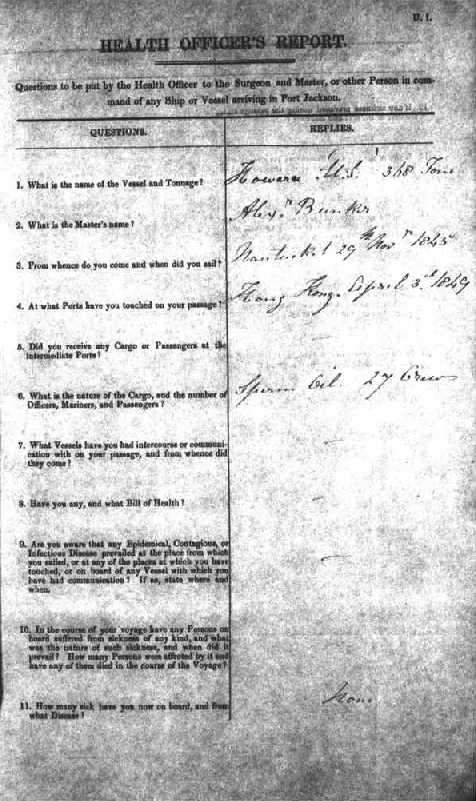 B. 1.
HEALTH OFFICER'S REPORT.
Questions to be put by the Health Officer to the Surgeon and Master, or other Person in com-
mand of any Ship or Vessel arriving in Port Jackson.
QUESTIONS.
REPLIES.
1. What is the name of the Vessel and Tonnage?
Howard U.S. 368 Tons
2. What is the Master's name?
Alexr Bunker
3. From whence do you come and when did you sail?
Nantucket 29th Novr 1845
4. At what Ports have you touched on your passage?
Hong Kong April 3d 1849
5. Did you receive any Cargo or Passengers at the
intermediate Ports?
6. What is the nature of the Cargo, and the number of
Officers, Mariners, and Passengers?
Sperm Oil 27 Crew
7. What Vessels have you had intercourse or communi-
cation with on your passage, and from whence did
they come?
8. Have you any, and what Bill of Health?
9. Are you aware that any Epidemical, Contagious, or
Infectious Disease prevailed at the place from which
you sailed, or at any of the places at which you have
touched, or on board of any Vessel with which you
have had communication? If so, state where and
when.
10. In the course of your voyage have any Persons on
board suffered from sickness of any kind, and what
was the nature of such sickness, and when did it
prevail? How many Persons were affected by it and
have any of them died in the course of the Voyage?
11. How many sick have you now on board, and from
what Disease?
None